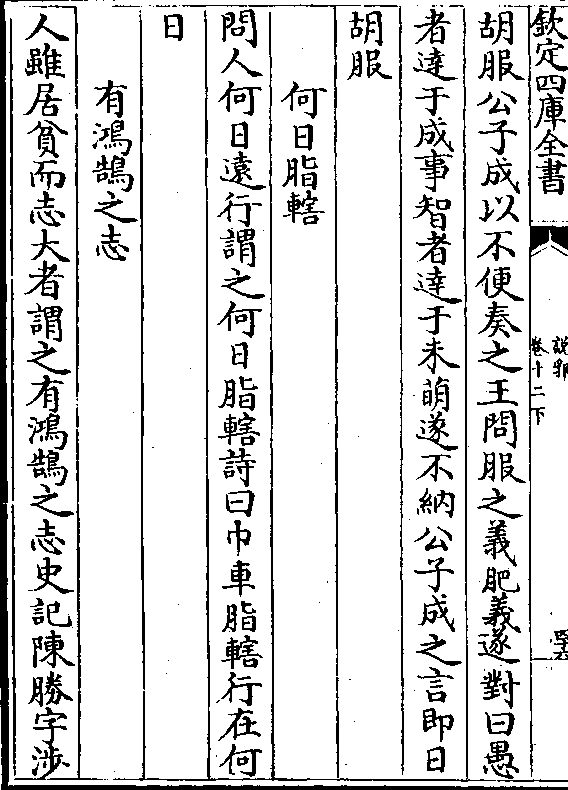 欽定四庫全書
說郛
卷十二下
胡服公子成以不便奏之王問服之義肥義遂對曰愚
者達于成事智者達于未萌遂不納公子成之言即日
胡服
何日脂轄
問人何日遠行謂之何日脂轄詩曰巾車脂轄行在何
日
有鴻鵠之志
人雖居貧而志大者謂之有鴻鵠之志史記陳勝字涉